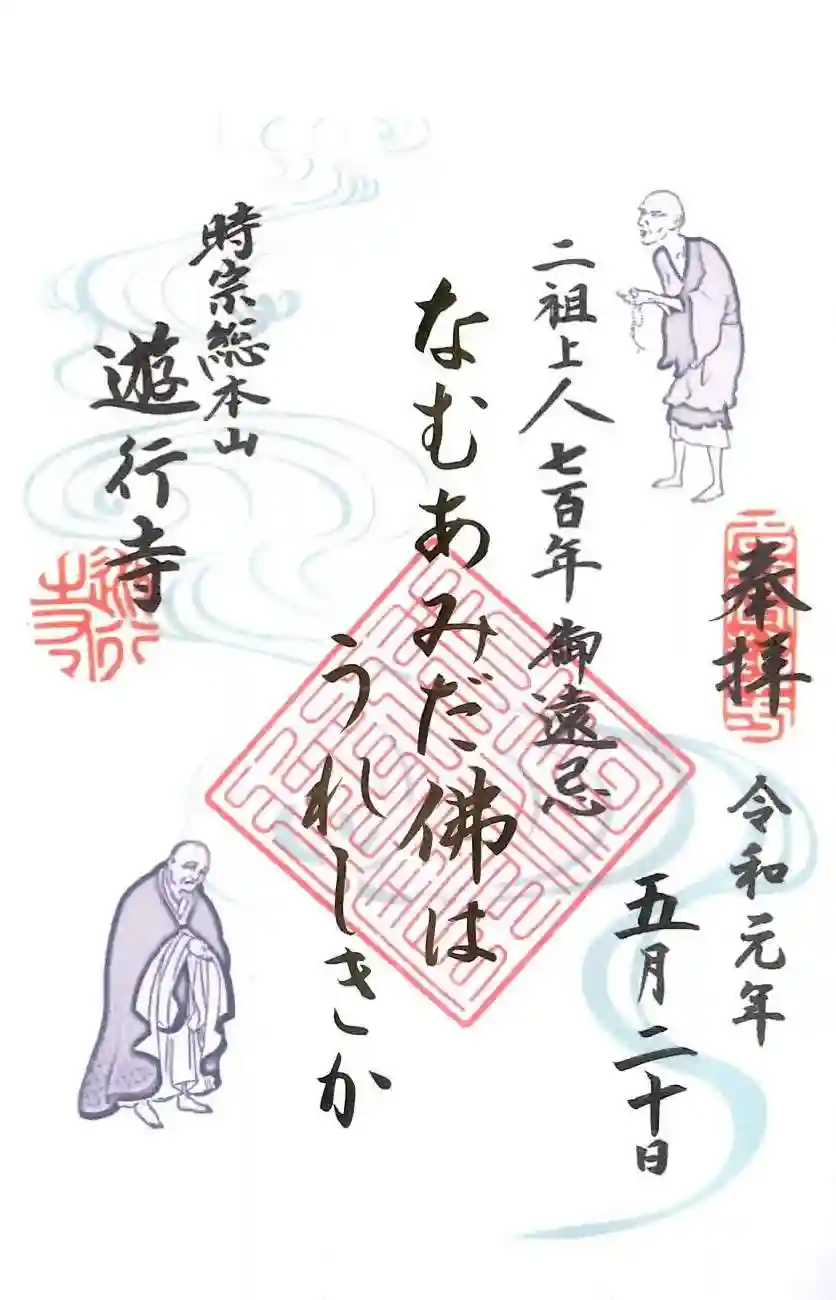 奉拝
令和元年
五月二十日
二祖上人七百年御遠忌
なむあみだ佛は
うれしきか
時宗総本山
遊行寺